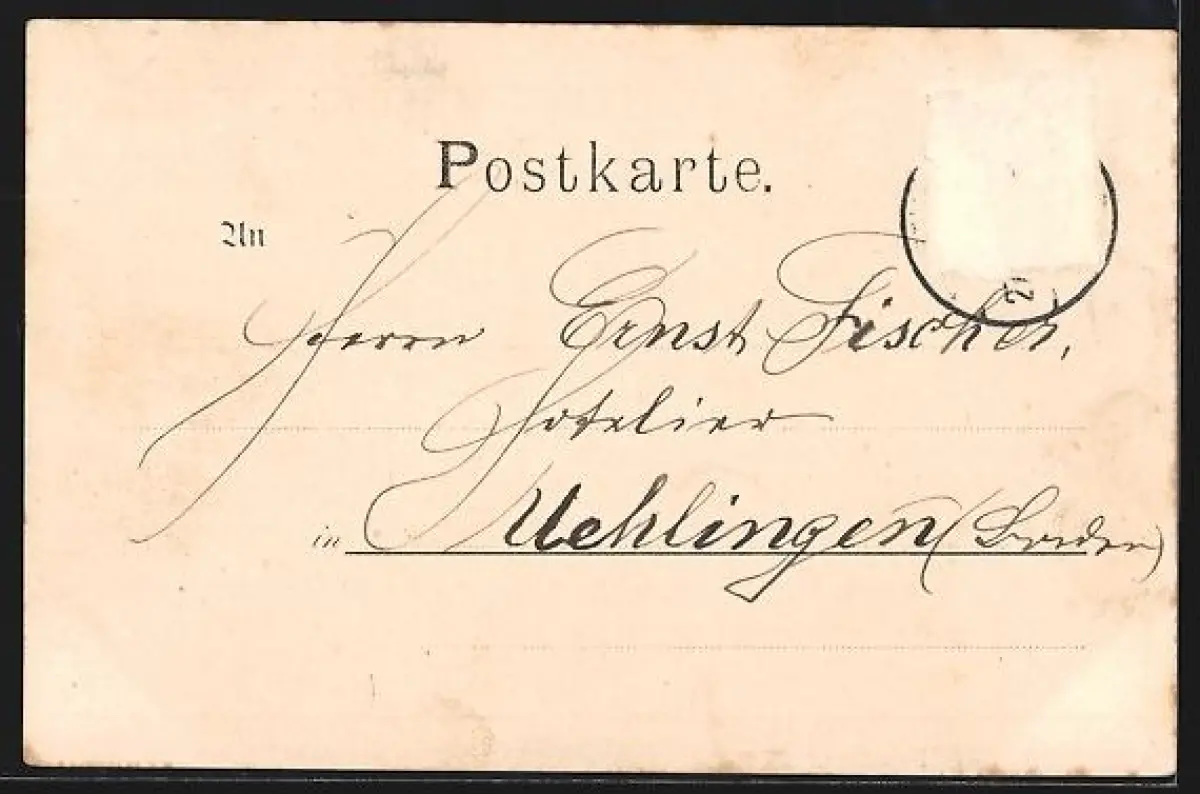 Postkarte.
An
Herrn Ernst Fischer,
Hotelier
in Uehlingen (Baden)